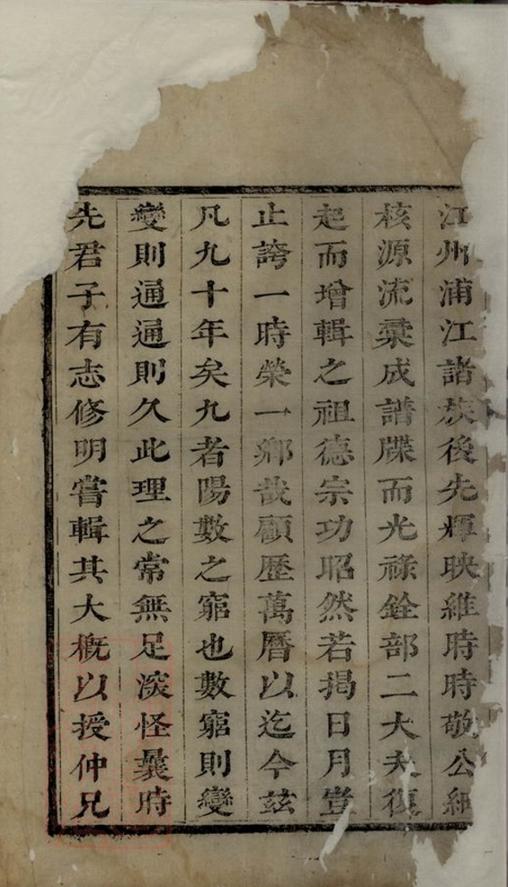 江州浦江諸族後先輝映維時時敬公經
核源流彚成譜牒而光祿銓部二大夫復
起而增輯之祖德宗功昭然若揭日月豈
止誇一時榮一鄉哉顧歷萬曆以迄今茲
凡九十年矣九者陽數之窮也數窮則變
變則通通則久此理之常無足深怪曩時
先君子有志修明嘗輯其大概以授仲兄